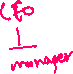 CEO
manager